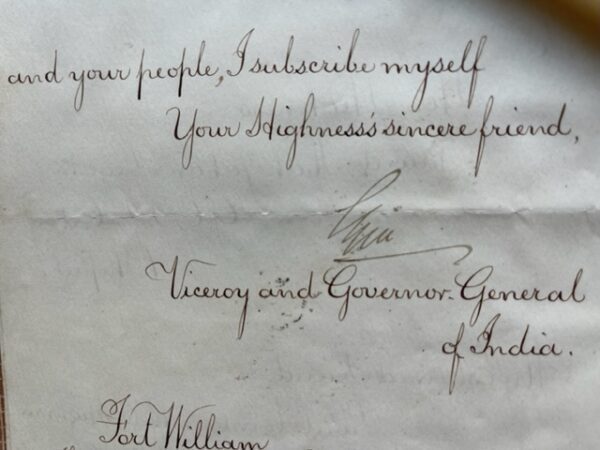 and your people, I subscribe myself
Your Highness's sincere friend,
Elgin
Viceroy and Governor-General
of India.
Fort William